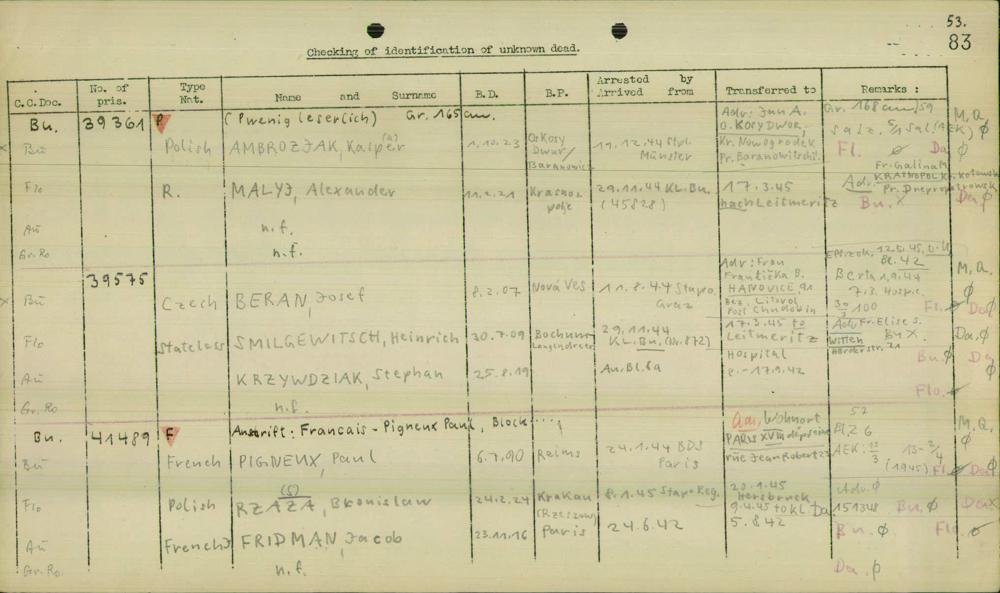 53.
83
Checking of identification of unknown dead.
C.C.Doc. No. of pris. Type Nat. Name and Surname B.D. B.P. Arrested by Arrived from Transferred to Remarks :
Bu. 39361 P (P wenig leserlich) Gr. 165 cm. Adr: Jun A. Gr. 168 cm/59 M.Q.
O. KOSY DWOR,
x Bu Polish AMBROZJAK, Kasper (a) 1.10.23 O. Kosy Dwur/ Baranowicz 19.12.44 Münster Kr. Nowogrodek Pr. Baranowitschi Fl. ø Da ø
Fr. Galina M.
Flo R. MALYJ, Alexander 11.2.21 Krasnopolje 29.11.44 KL. Bu. (45828) 17.3.45 nach Leitmeritz Adr. KRATNOPOL Bu. x Da ø
Au n.f.
Gr. Ro n.f.
39575 Adr: Frau Františka B. 12.5.45 Bl. 42 M.Q. ø
x Bu Czech BERAN, Josef 8.2.07 Nová Ves 11.8.44 Stapo Graz HANOVICE 91 Bez. Litovol Post Chudobin 7.3. 100 Fl. ø Da ø
Flo Stateless SMILGEWITSCH, Heinrich 30.7.09 Bochum Langendreer 29.11.44 KL. Bu. (Nr. 872) 17.3.45 to Leitmeritz Adr: Fr. Elise S. Witten Bu x Da, ø
Au KRZYWDZIAK, Stephan 25.8.19 Au. Bl. 6a Hospital - 17.9.42 Bu. ø Da ø
Flo. ø
Gr. Ro n.f.
Bu. 41489 F Anschrift: Francais - Pigneux Paul, Block ....; Wohnort 52 M.Q. ø
Bu French PIGNEUX, Paul 6.7.90 Reims 24.1.44 BDS Paris PARIS XVIII rue Jean Robert MZG AEK: (1945) Fl. ø Da ø
Flo Polish RZAZA, (S) Bronislaw 24.2.24 Krakau (Rzeszow) 8.1.45 Stapo Reg. 20.1.45 Hersbruck 9.4.45 to KL Da Adr. ø 151348 Bu. ø Da x
Au French J FRIDMAN, Jacob 23.11.16 Paris 24.6.42 5.8.42 Bu. ø Flo. ø
Gr. Ro. n.f. Da. ø